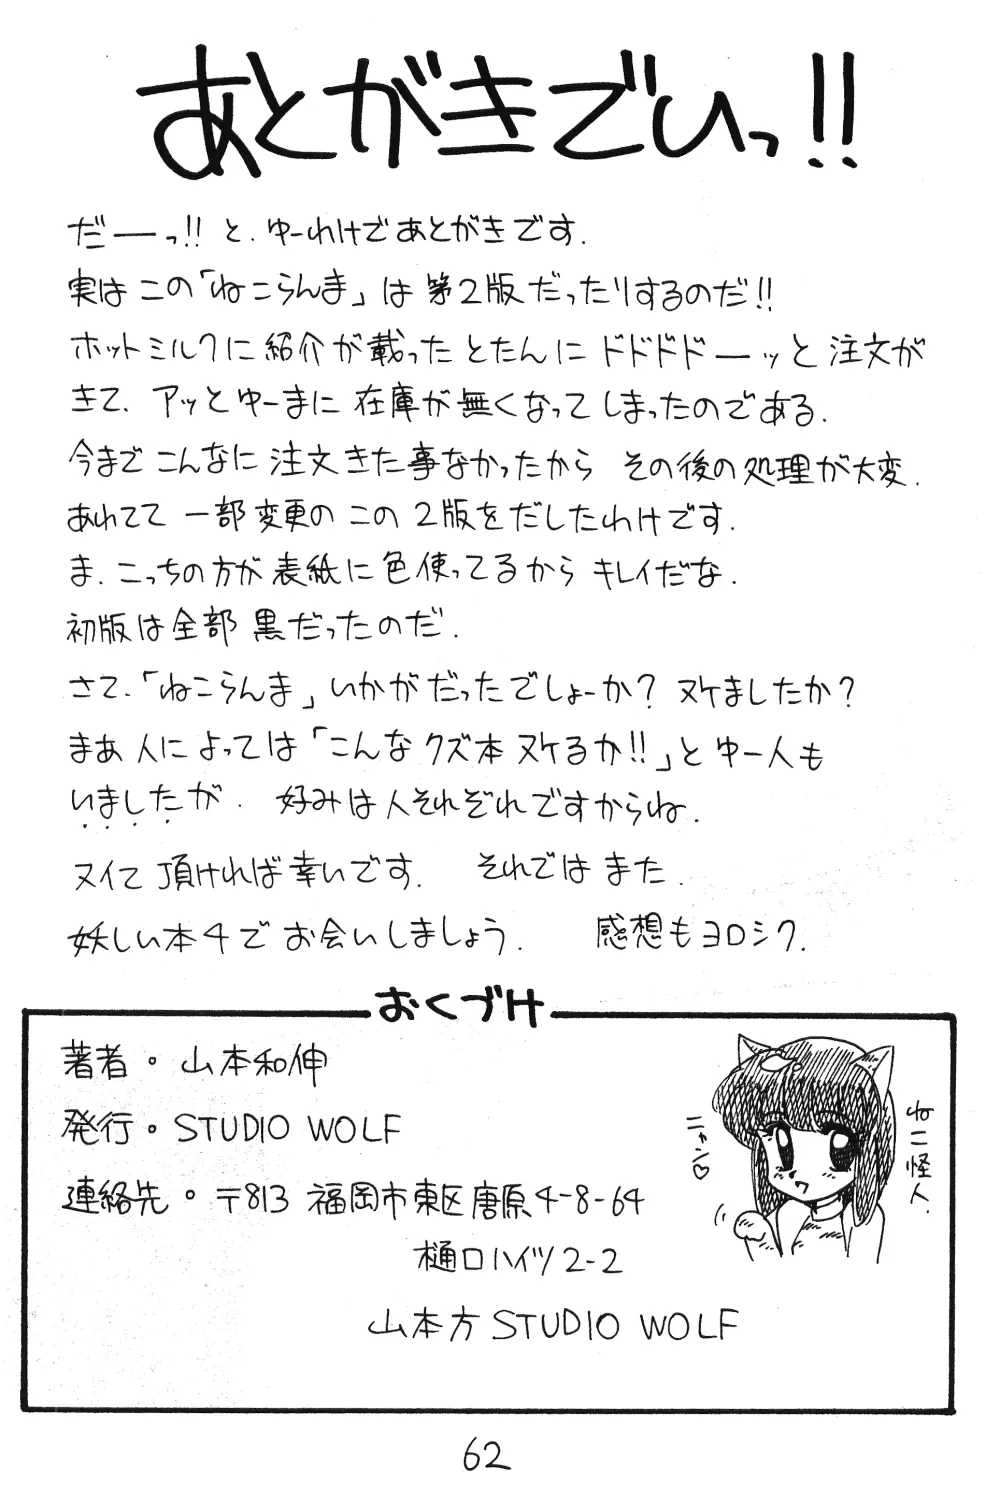 あとがきでいっ!!
だーっ!! と、ゆーわけであとがきです.
実はこの「ねこらんま」は第2版だったりするのだ!!
ホットミルクに紹介が載ったとたんにドドドドーッと注文が
きて、アッとゆーまに在庫が無くなってしまったのである.
今までこんなに注文きた事なかったから その後の処理が大変.
あわてて一部変更のこの2版をだしたわけです.
ま、こっちの方が表紙に色使ってるからキレイだな.
初版は全部黒だったのだ.
さて、「ねこらんま」いかがだったでしょーか? ヌケましたか?
まあ人によっては「こんなクズ本ヌケるか!!」とゆー人も
いましたが、 好みは人それぞれですからね.
ヌイて頂ければ幸いです. それではまた.
妖しい本4でお会いしましょう. 感想もヨロシク.
おくづけ
著者・山本和伸
発行・STUDIO WOLF
連絡先・〒813 福岡市東区唐原4-8-64
樋口ハイツ2-2
山本方 STUDIO WOLF
ニャン♡
ねこ怪人.
62